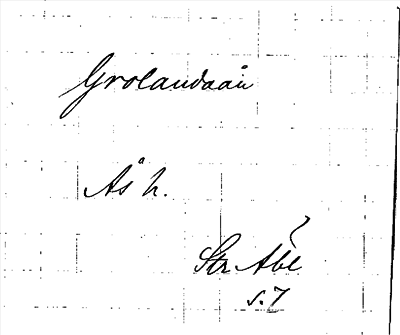 Grolandaån
Ås h.
Str. Abl
s. 7